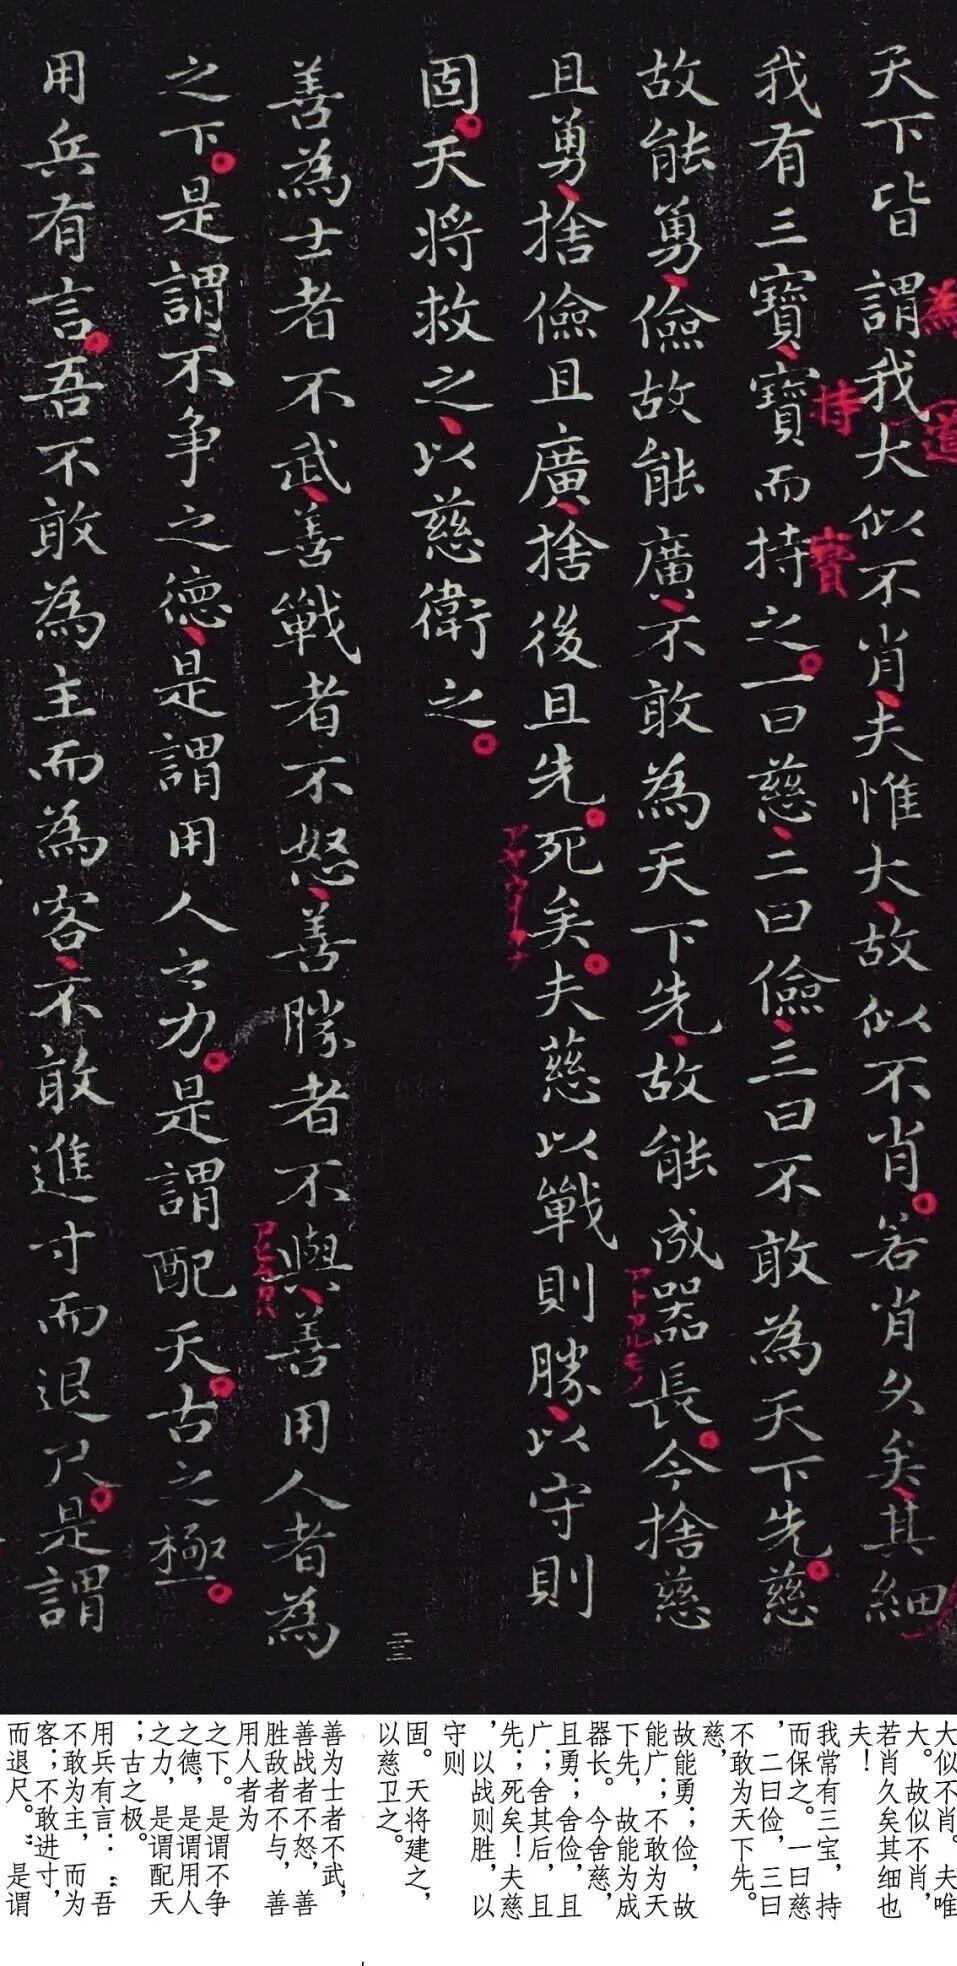 天下皆謂我大似不肖夫惟大故似不肖若肖久矣其細
為
道
我有三寶寶而持之一曰慈二曰儉三曰不敢為天下先慈
持
寶
故能勇儉故能廣不敢為天下先故能成器長今捨慈
且勇捨儉且廣捨後且先死矣夫慈以戰則勝以守則
固天將救之以慈衛之
三三
善為士者不武善戰者不怒善勝者不與善用人者為
之下是謂不争之德是謂用人之力是謂配天古之極
用兵有言吾不敢為主而為客不敢進寸而退尺是謂
大似不肖。夫唯
大。故似不肖，
若肖久矣其细也
夫！
我常有三宝，持
而保之。一曰慈
，二曰俭，三曰
不敢为天下先。
慈，
故能勇；俭，故
能广；不敢为天
下先，故能为成
器长。今舍慈，
且勇；舍俭，且
广；舍其后，且
先；死矣！夫慈
，以战则胜，以
守则
固。天将建之，
以慈卫之。
善为士者不武，
善战者不怒，善
胜敌者不与，善
用人者为
之下。是谓不争
之德，是谓用人
之力，是谓配天
；古之极。
用兵有言：“吾
不敢为主，而为
客；不敢进寸，
而退尺。”是谓